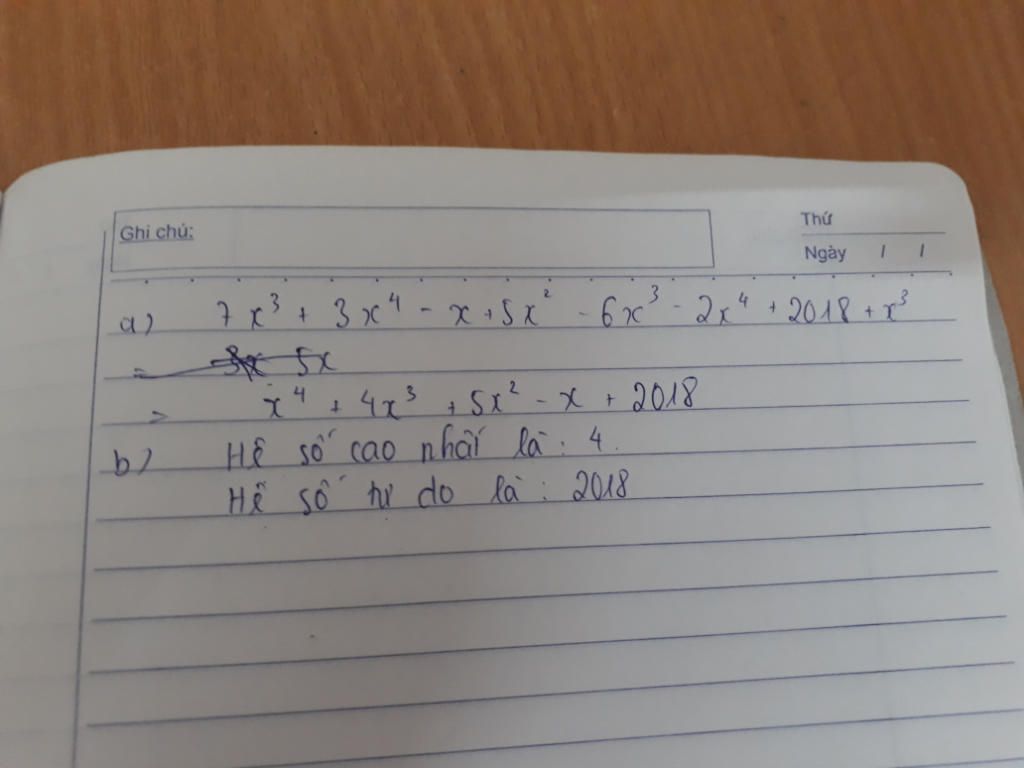 Ghi chú:
Thứ
Ngày / /
a) 7x³ + 3x⁴ - x + 5x² - 6x³ - 2x⁴ + 2018 + x³
= 3x 5x
= x⁴ + 4x³ + 5x² - x + 2018
b) Hệ số cao nhất là: 4.
Hệ số tự do là: 2018